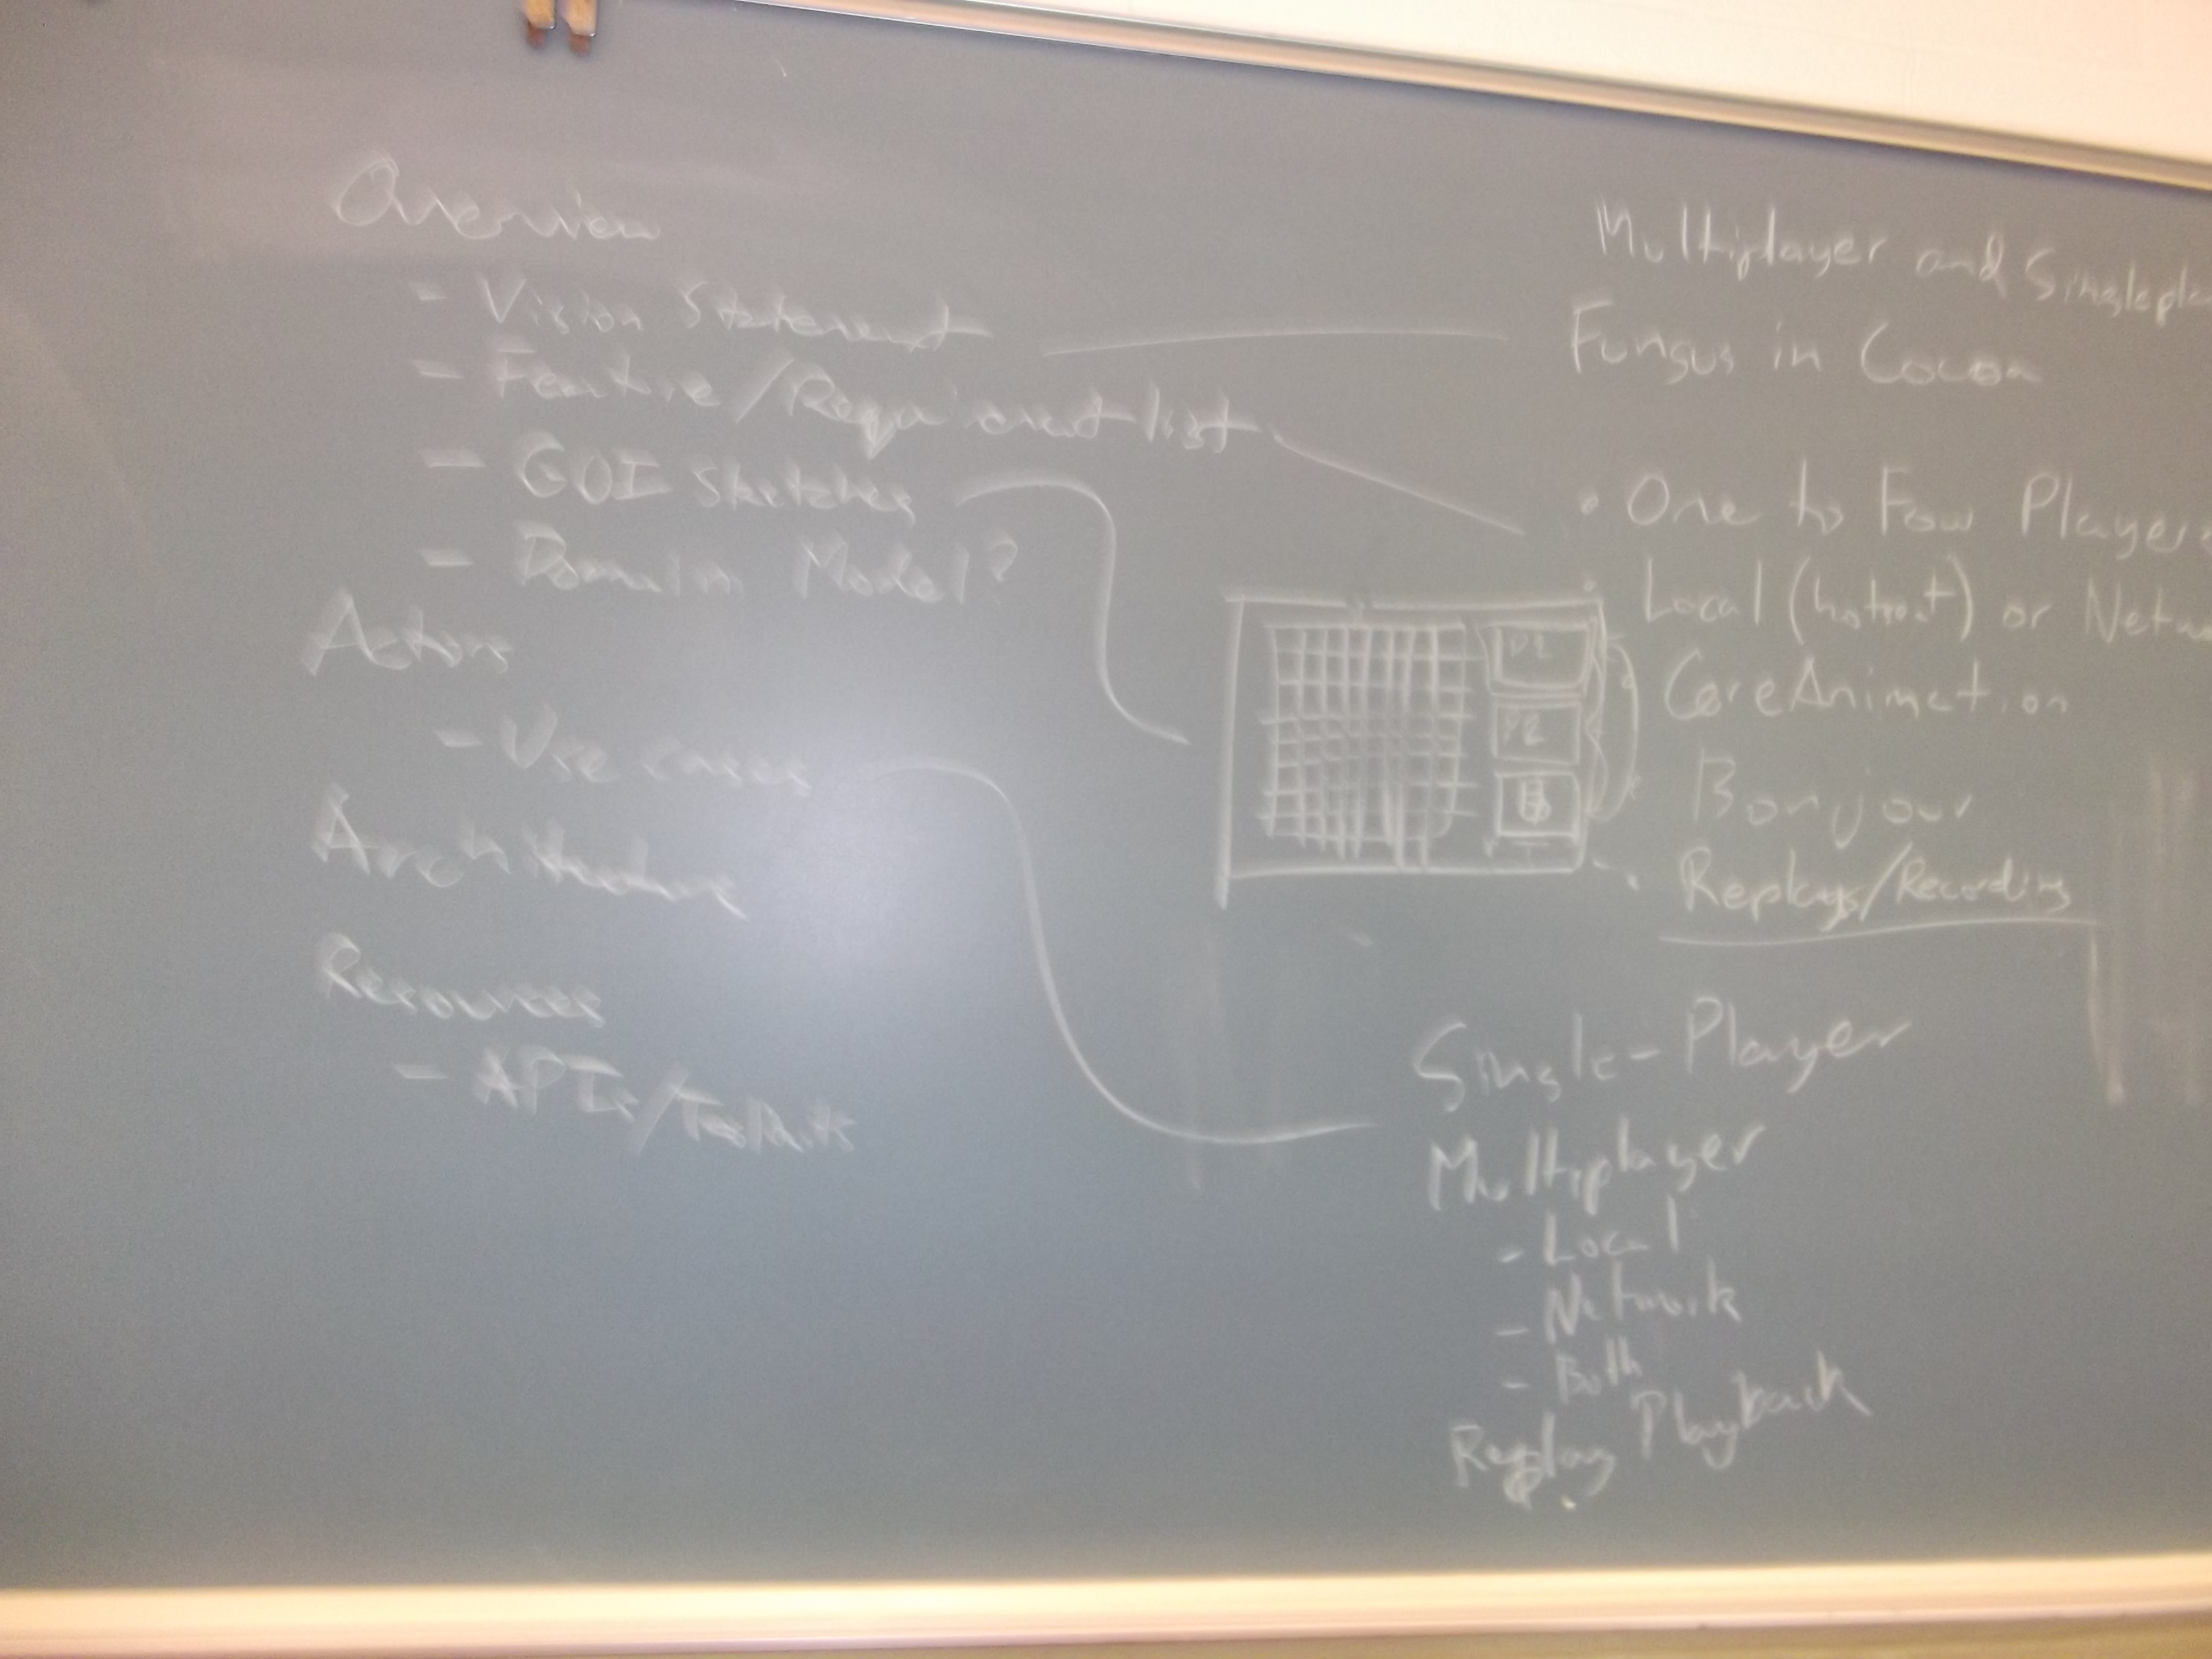 Overview
- Vision Statement
- Feature/Requirement list
- GUI Sketches
- Domain Model?
Actors
- Use cases
Architecture
Resources
- APIs/Toolkits
Multiplayer and Singlepla
Fungus in Cocoa
• One to Four Players
• Local (hotseat) or Netw
CoreAnimation
Bonjour
Replays/Recording
P1
P2
Single-Player
Multiplayer
- Local
- Network
- Both
Replay Playback